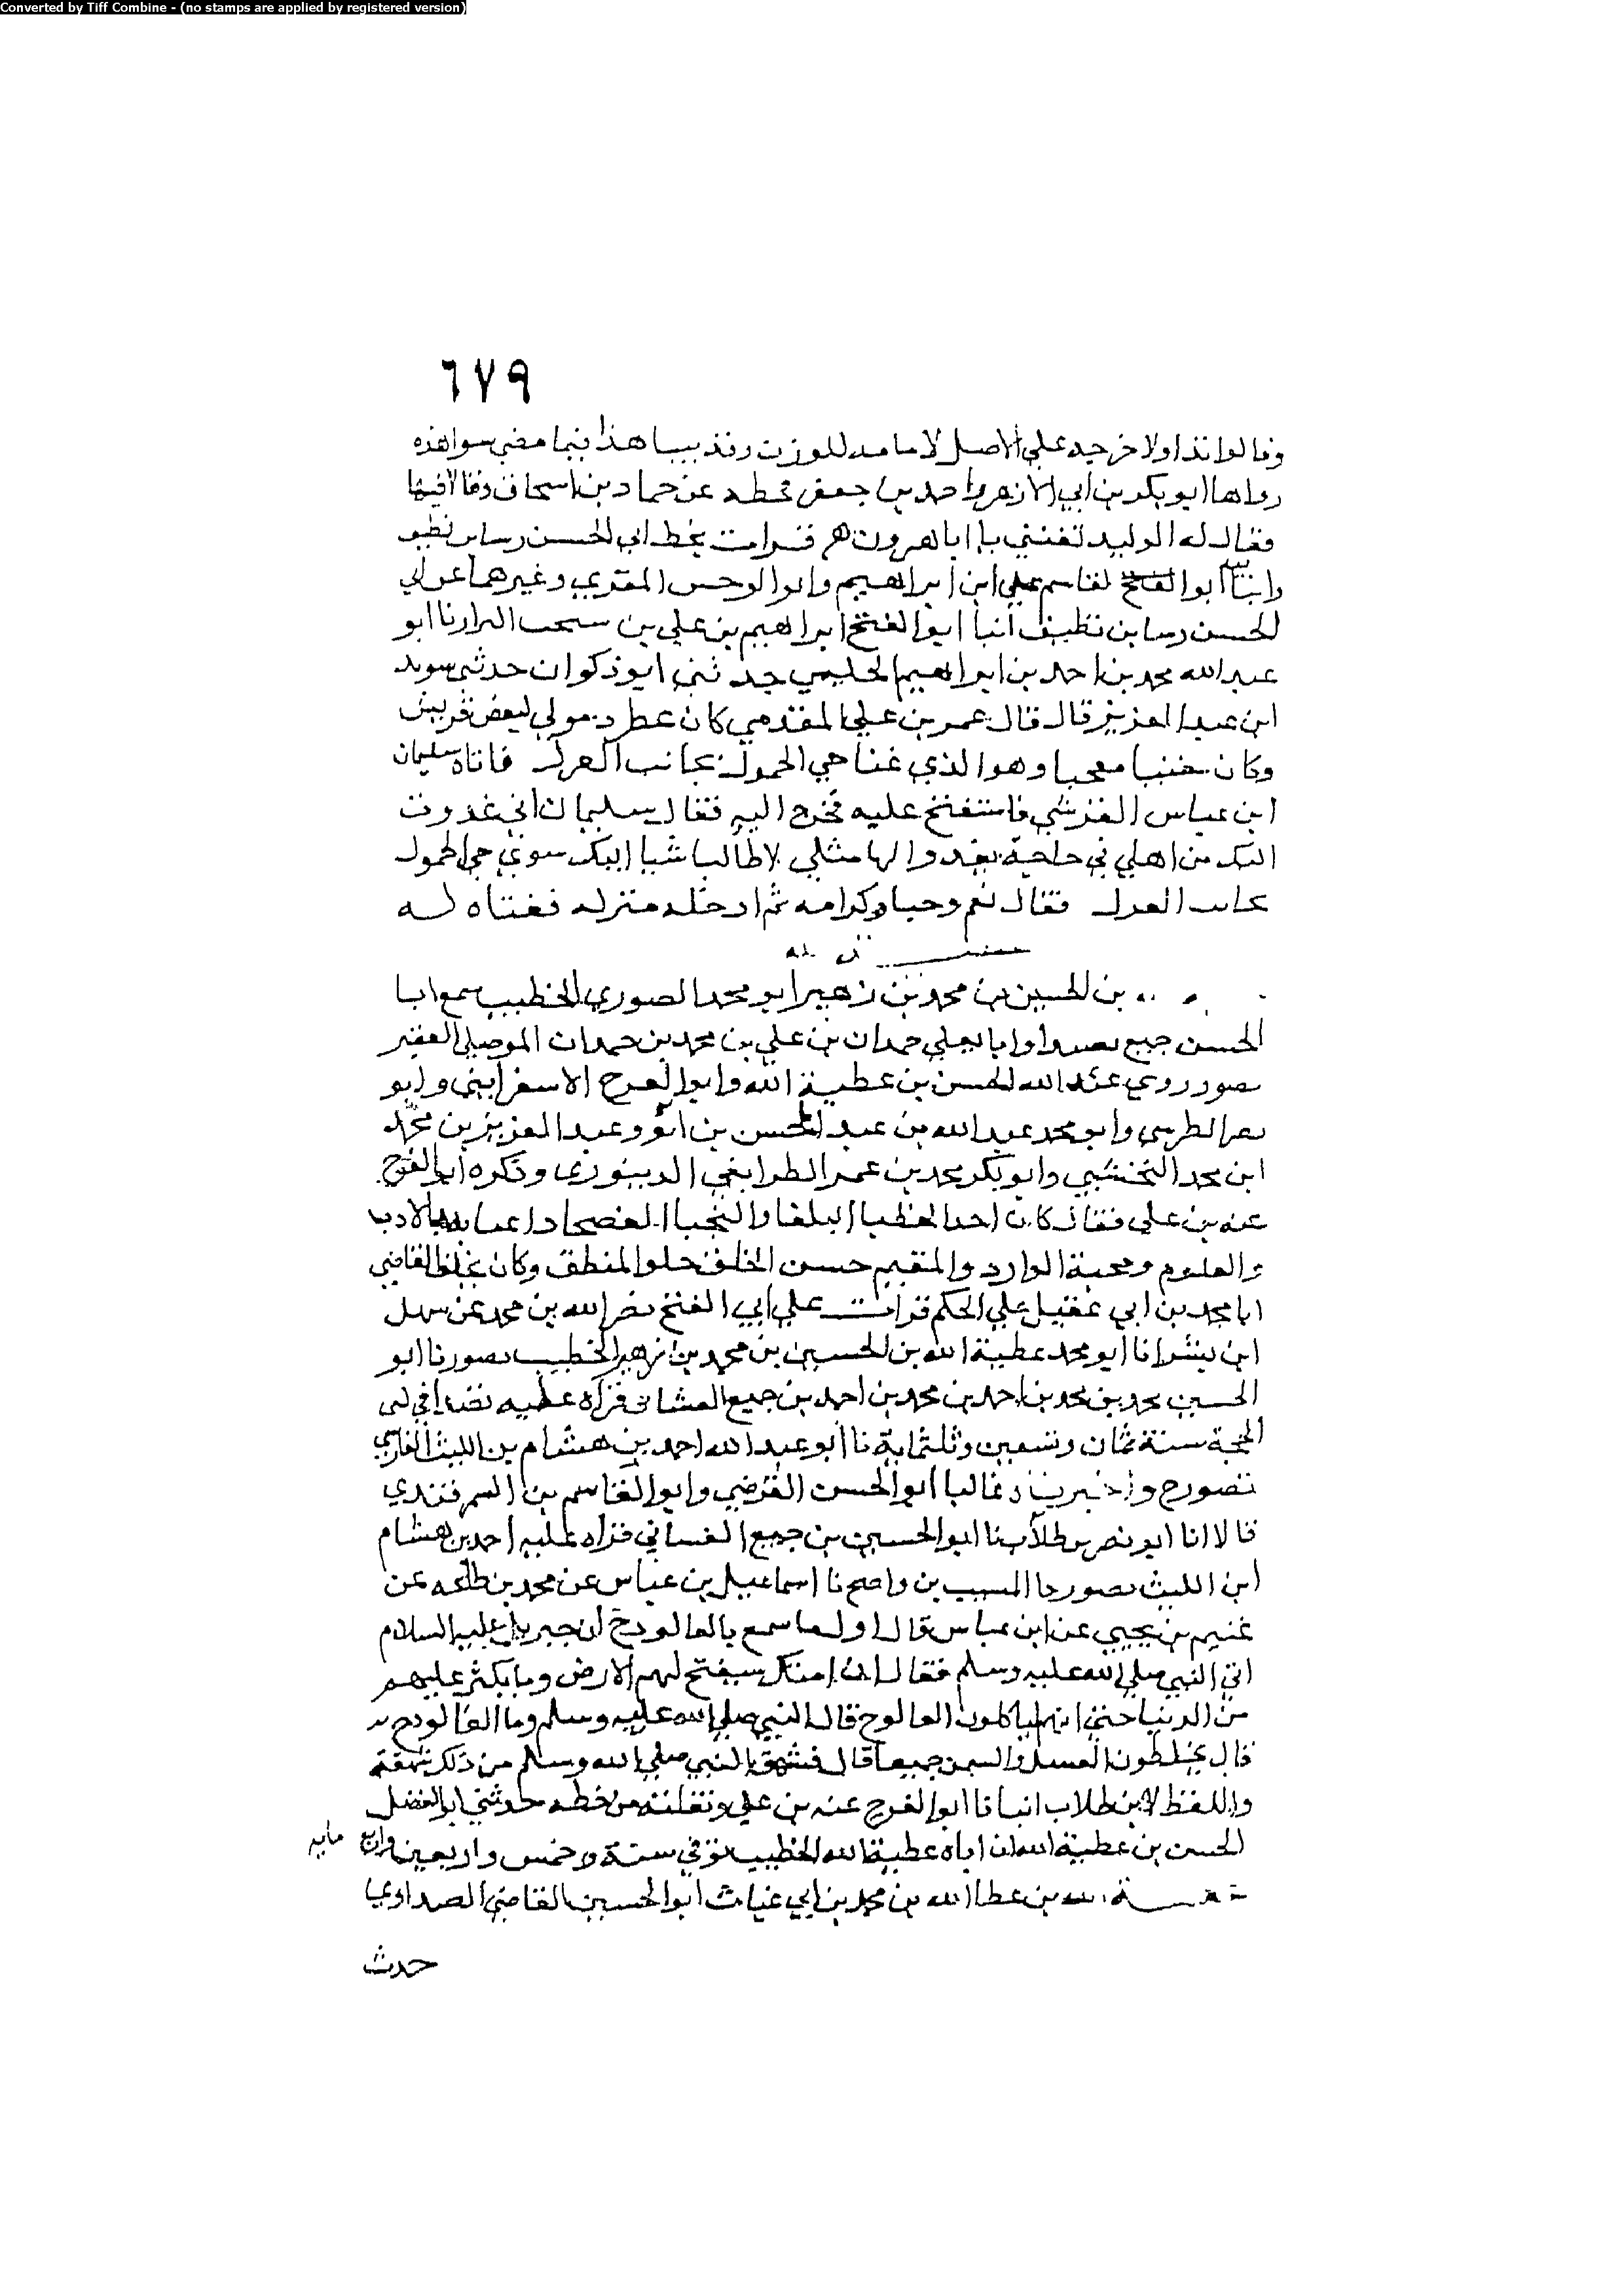 Converted by Tiff Combine - (no stamps are applied by registered version)
٦٧٩
علي الاصل هذا فيما مضي سوا هذه
رواها ابو بكر بن ابي الازهر واحمد بن جعفر جحظه عن حماد بن اسحاق وقالا فيها
فقال له الوليد تغنني يا ابا هرون هر قرات بخط ابي الحسن رسا بن نظيف
وابو الوحس المقري وغيرهما عن ابي
الحسن رسا بن نظيف انبا ابو الفتح ابراهيم بن علي بن نا ابو
عبد الله محمد بن احمد بن ابراهيم الحليمي حدثني ابو ذكوان حدثني سويد
ابن عبد العزيز قال قال عمر بن علي المقدمي كان عطرد مولي لبعض قريش
وكان معجبا وهو الذي غنا حي الحمول بجانب العزل فاتاه سليمان
ابن عباس القرشي فاستفتح عليه فخرج اليه فقال سليمان اني غدوت
اليك من اهلي في حاجة يغدوا لها مثلي لا طالبا شيا اليك سوي حي الحمول
بجانب العزل فقال نعم وحبا وكرامه ثم ادخله منزله فغناه له
بن الحسين بن محمد بن زهير ابو محمد الصوري الخطيب سمع ابا
الحسن جميع بصيدا وابا يعلي حمدان بن علي بن محمد بن حمدان الموصلي الفقير
بصور روي عنه ابنه الحسن بن عطية الله وابو الفرح الاسفرايني وابو
نصر الطريثي وابو محمد عبد الله بن عبد المحسن بن ابو وعبد العزيز بن محمد
ابن محمد النخشبي وابو بكر محمد بن عمر الطرايفي الدينوري وذكره ابو الفرج
عنه بن علي فقال كان احد الخطبا البلغا والنجبا الفصحا بالادب
والعلوم ومحبة الوارد والمقيم حسن الخلق حلو المنطق وكان يخلف القاضي
ابا محمد بن ابي عقيل علي الحكم قرات علي ابي الفتح نصر الله بن محمد عن سهل
ابن بشر انا ابو محمد عطية الله بن الحسين بن محمد بن زهير الخطيب بصور نا ابو
الحسين محمد بن محمد بن احمد بن محمد بن احمد بن جميع الغساني قراه عليه بصيدا في ذي
الحجة سنة ثمان وتسعين وثلثماية نا ابو عبد الله احمد بن هشام بن الليث الفارسي
بصور ح واخبرناه عاليا ابو الحسن الفرضي وابو القاسم بن السمرقندي
قالا انا ابو نصر بن طلاب نا ابو الحسين بن جميع الغساني قراه عليه احمد بن هشام
ابن الليث بصور نا المسيب بن واضح نا اسماعيل بن عياش عن محمد بن طلحه عن
عثيم بن يحيي عن ابن عباس قال اول ما سمع بالفالودج ان جبريل عليه السلام
اتي النبي صلي الله عليه وسلم فقال ان امتك سيفتح لهم الارض وما يكثر عليهم
من الدنيا حتي انهم لياكلون الفالوج قال النبي صلي الله عليه وسلم وما الفالودج
قال يخلطون العسل والسمن جميعا قال فشهق النبي صلي الله وسلم من ذلك شهقة
واللفظ لابن طلاب انبانا ابو الفرج عنه بن علي ونقلته من خطه حدثني ابو الفضل
الحسن بن عطية الله ان اباه عطية الله الخطيب توفي سنة خمس واربعين واربع مايه
بن عطا الله بن محمد بن ابي غياث ابو الحسين القاضي الصيداوي
حدث